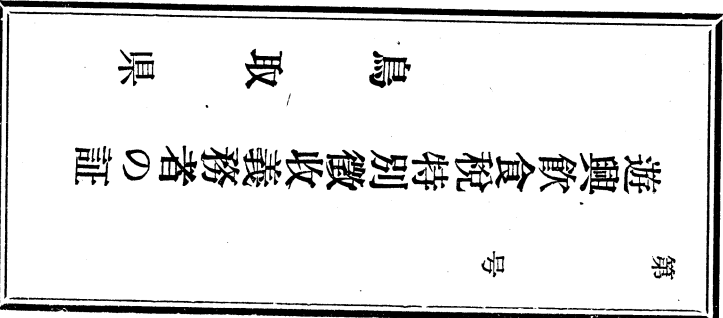 第　号
遊興飲食税特別徴收義務者の証
鳥取県